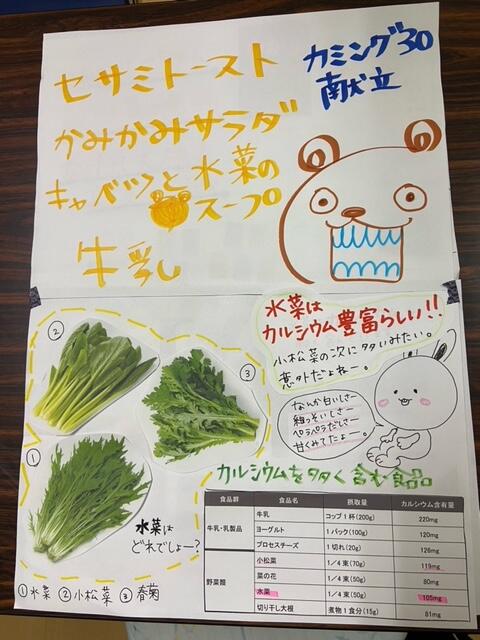 セサミトースト
カミング30
献立
かみかみサラダ
キャベツと水菜の
スープ
牛乳
水菜は
カルシウム豊富らしい!!
小松菜の次に多いみたい。
意外だよねー。
なんか白いしさー
細っそいしさー
ペラペラだしさー
甘くみてたよー。
②
③
①
水菜は
どれでしょー?
①水菜 ②小松菜 ③春菊
カルシウムを多く含む食品
食品群 食品名 摂取量 カルシウム含有量
牛乳・乳製品 牛乳 コップ1杯(200g) 220mg
ヨーグルト 1パック(100g) 120mg
プロセスチーズ 1切れ(20g) 126mg
野菜類 小松菜 1/4束(70g) 119mg
菜の花 1/4束(50g) 80mg
水菜 1/4束(50g) 105mg
切り干し大根 煮物1食分(15g) 81mg